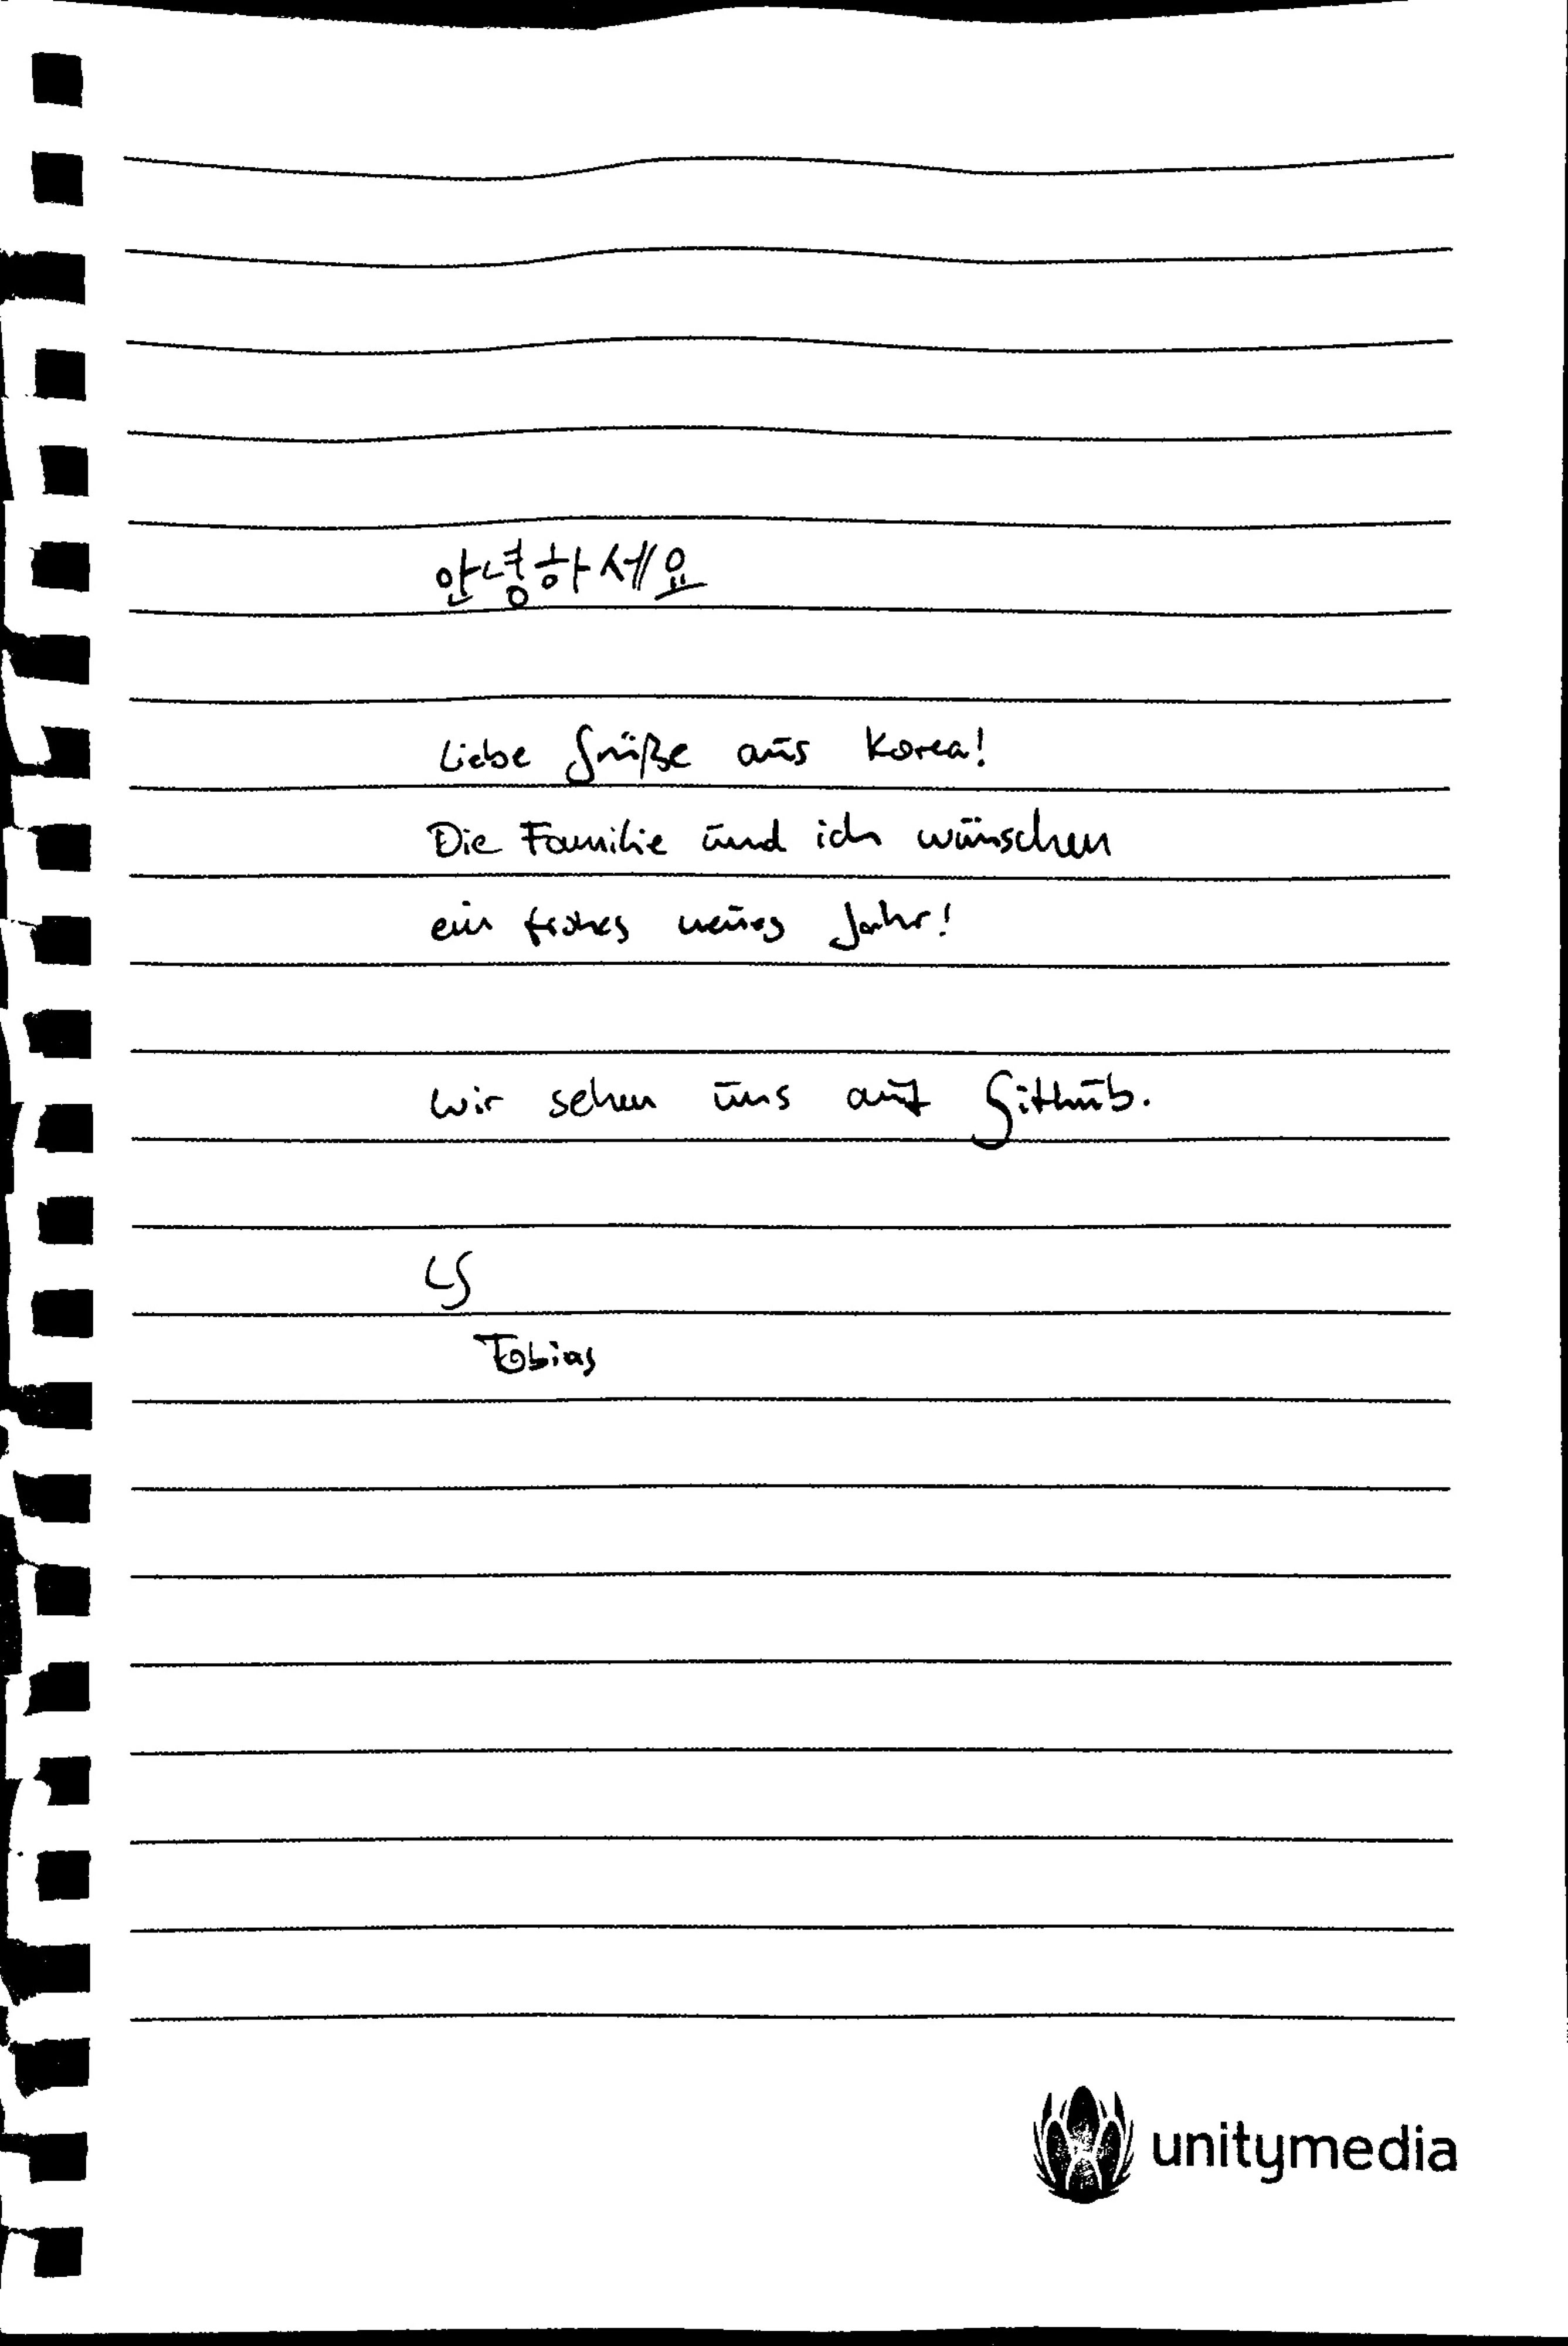 안녕하세요
Liebe Grüße aus Korea!
Die Familie und ich wünschen
ein frohes neues Jahr!
Wir sehen uns auf Github.
LG
Tobias
unitymedia